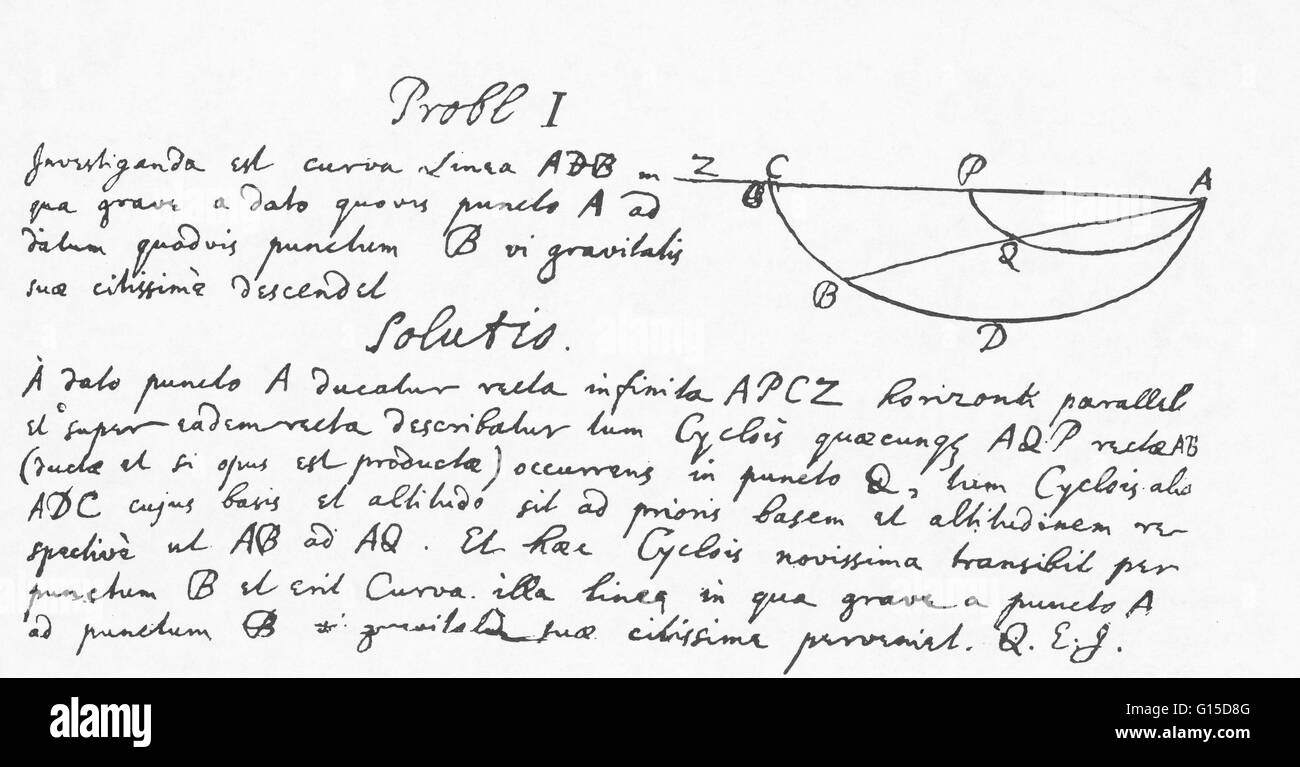 Probl I
Investiganda est curva Linea ADB in
qua grave a dato quovis puncto A ad
datum quodvis punctum B vi gravitatis
suæ citissimè descendet
Z C P A
Q
B
D
Solutio.
À dato puncto A ducatur recta infinita APCZ horizonti parallela
et super eadem recta describatur tum Cyclois quæcunqꝫ AQP rectæ AB
(ductæ et si opus est productæ) occurrens in puncto Q, tum Cyclois alia
ADC cujus basis et altitudo sit ad prioris basem et altitudinem re-
spectivè ut AB ad AQ. Et hæc Cyclois novissima transibit per
punctum B et erit Curva illa linea in qua grave a puncto A
ad punctum B vi gravitatis suæ citissime perveniet. Q.E.I.
alamy
Image ID: G15D8G
www.alamy.com